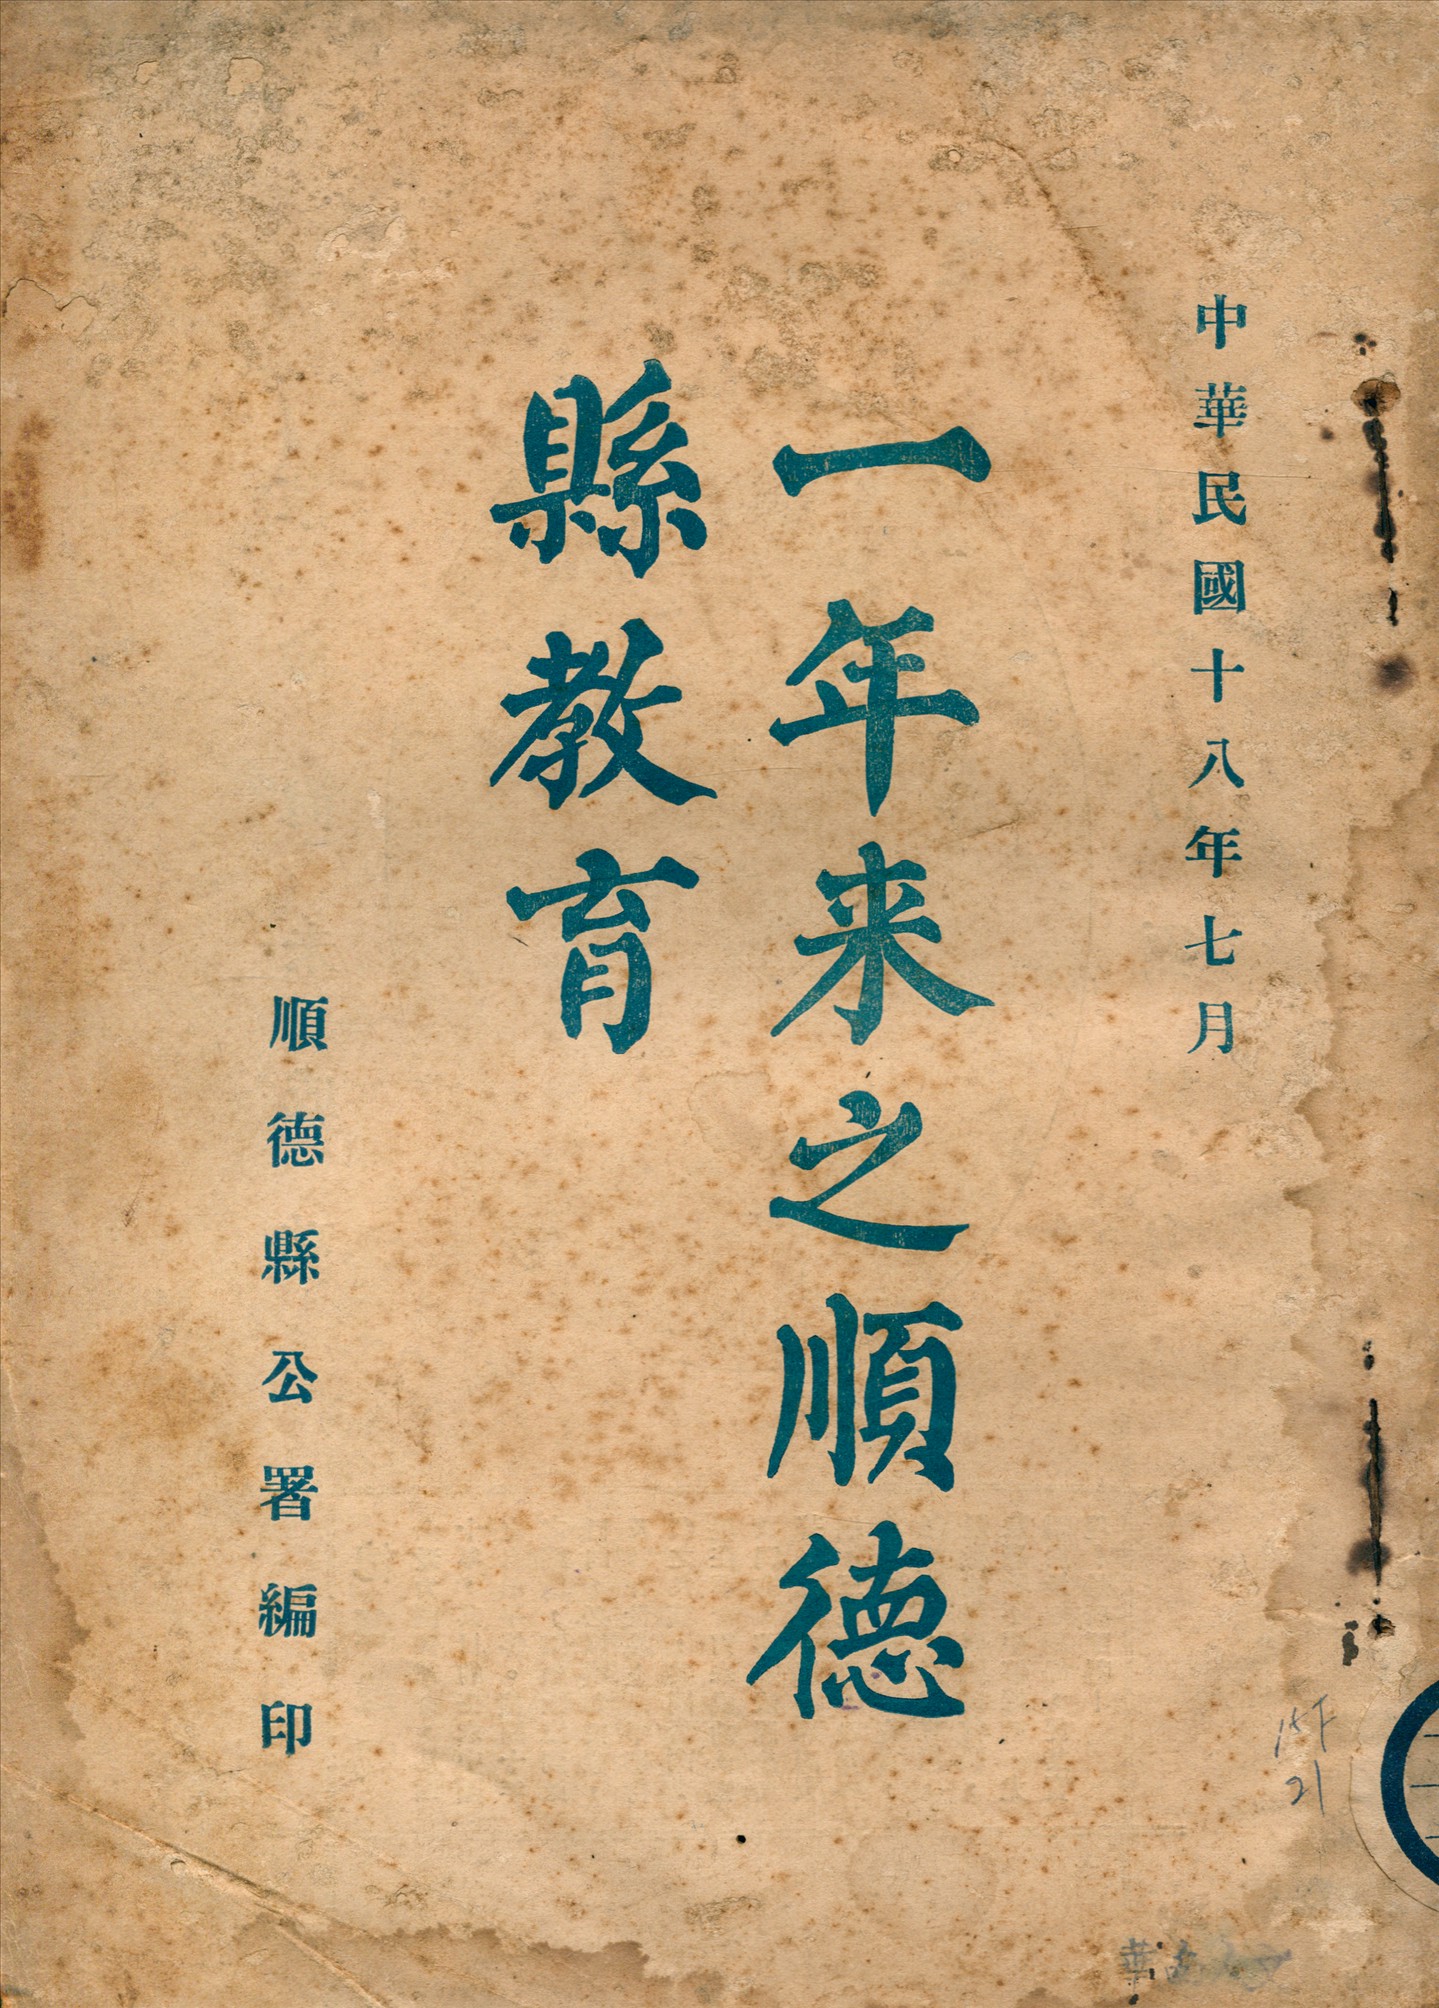 中華民國十八年七月
一年来之順德
縣教育
順德縣公署編印
15F
21